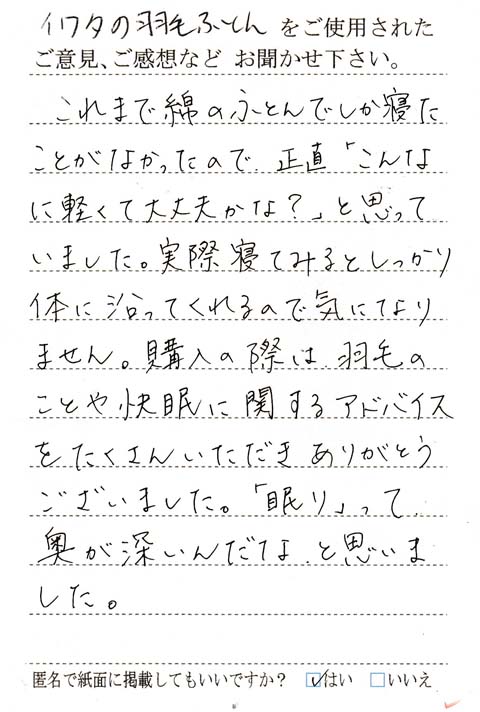 イワタの羽毛ふとん をご使用された
ご意見、ご感想など お聞かせ下さい。
これまで綿のふとんでしか寝た
ことがなかったので、正直「こんな
に軽くて大丈夫かな?」と思って
いました。実際寝てみるとしっかり
体に沿ってくれるので気になり
ません。購入の際は、羽毛の
ことや快眠に関するアドバイス
をたくさんいただきありがとう
ございました。「眠り」って、
奥が深いんだな、と思いま
した。
匿名で紙面に掲載してもいいですか? ☑はい □いいえ